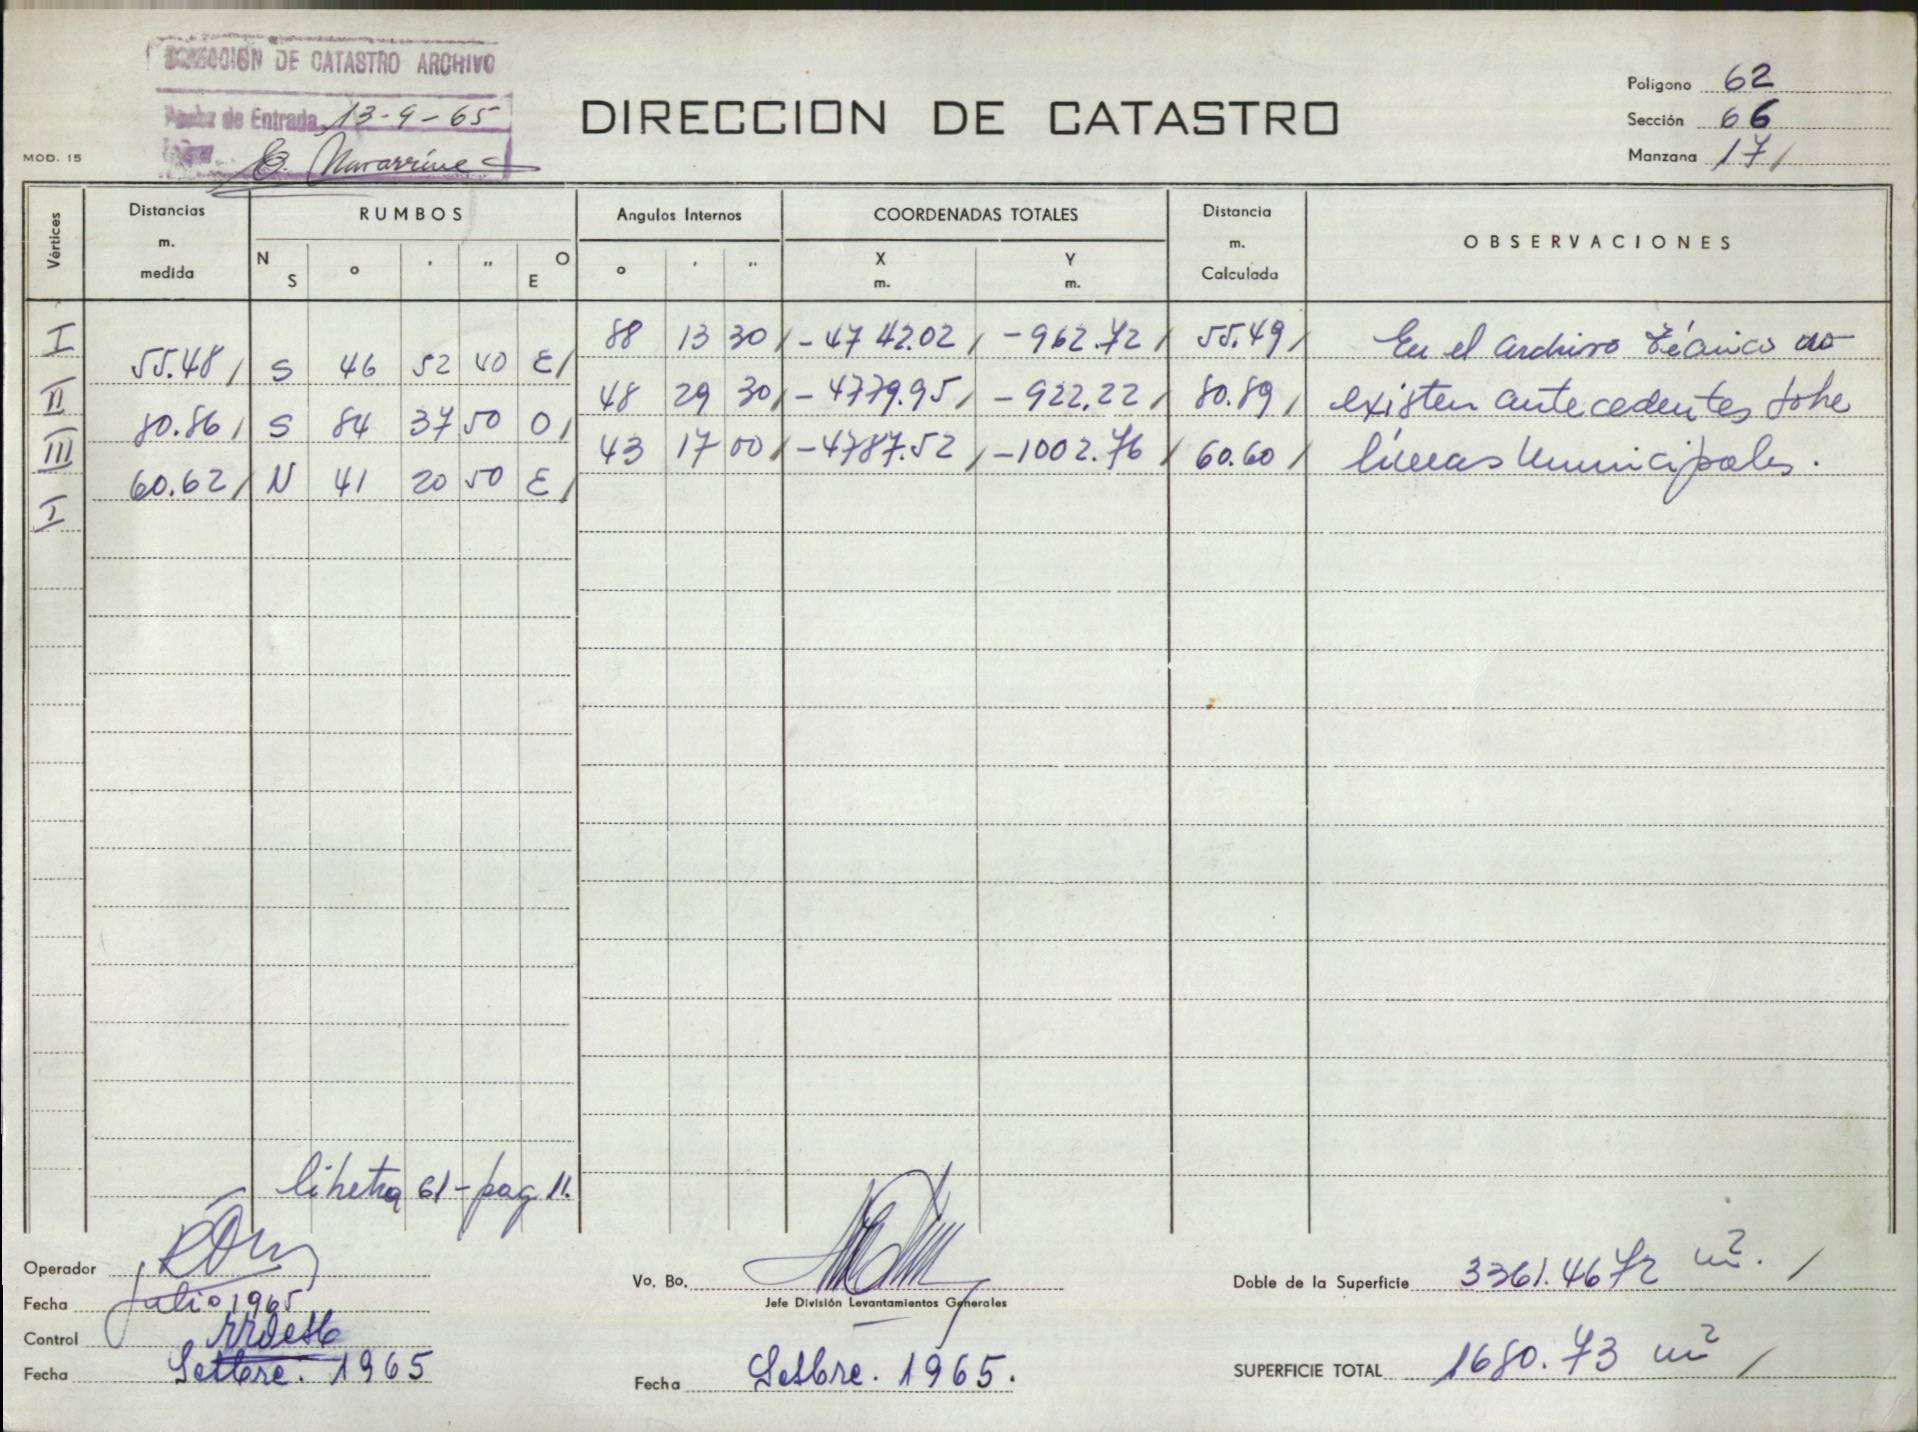 DIRECCION DE CATASTRO ARCHIVO
Fecha de Entrada 13-9-65
DIRECCION DE CATASTRO
Polígono 62
Sección 66
Manzana 17/
MOD. 15
Vértices
Distancias m. medida
RUMBOS
N S ° ' " E O
Angulos Internos
° ' "
COORDENADAS TOTALES
X m. Y m.
Distancia m. Calculada
OBSERVACIONES
I 88 13 30/ -4742.02/ -962.72/ 55.49/ En el archivo técnico no
55.48/ S 46 52 40 E/
II 48 29 30/ -4779.95/ -922.22/ 80.89/ existen antecedentes sobre
80.86/ S 84 37 50 O/
III 43 17 00/ -4787.52/ -1002.76/ 60.60/ líneas Municipales.
60.62/ N 41 20 50 E/
I
libreta 61 - pag 11.
Operador
Fecha Julio 1965
Control
Fecha Setbre. 1965
Vo. Bo.
Jefe División Levantamientos Generales
Fecha Setbre. 1965.
Doble de la Superficie 3361.4672 m². /
SUPERFICIE TOTAL 1680.73 m² /